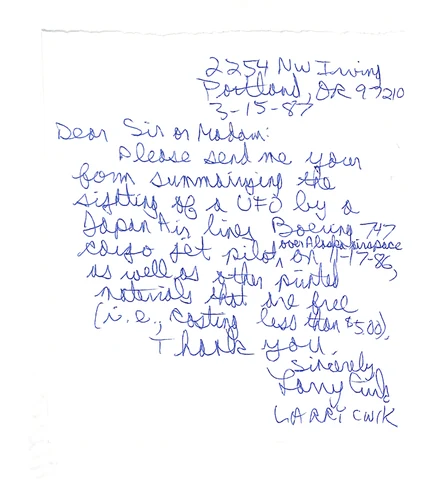 2254 NW Irving
Portland, OR 97210
3-15-87
Dear Sir or Madam:
Please send me your
form summarizing the
sighting of a UFO by a
Japan Air lines Boeing 747
cargo jet pilot, over Alaskan airspace
on 11-17-86,
as well as other printed
materials that are free
(i.e., costing less than $5.00).
Thank you.
Sincerely
Larry Cwik
LARRY CWIK